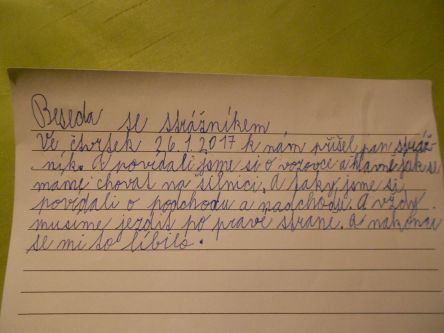 Beseda se strážníkem
Ve čtvrtek 26.1.2017 k nám přišel pan stráž-
ník. A povídali jsme si o vozovce a hlavně jak se
máme chovat na silnici. A taky jsme si
povídali o podchodu a nadchodu. A vždy
musíme jezdit po pravé straně. A nakonci
se mi to líbilo.